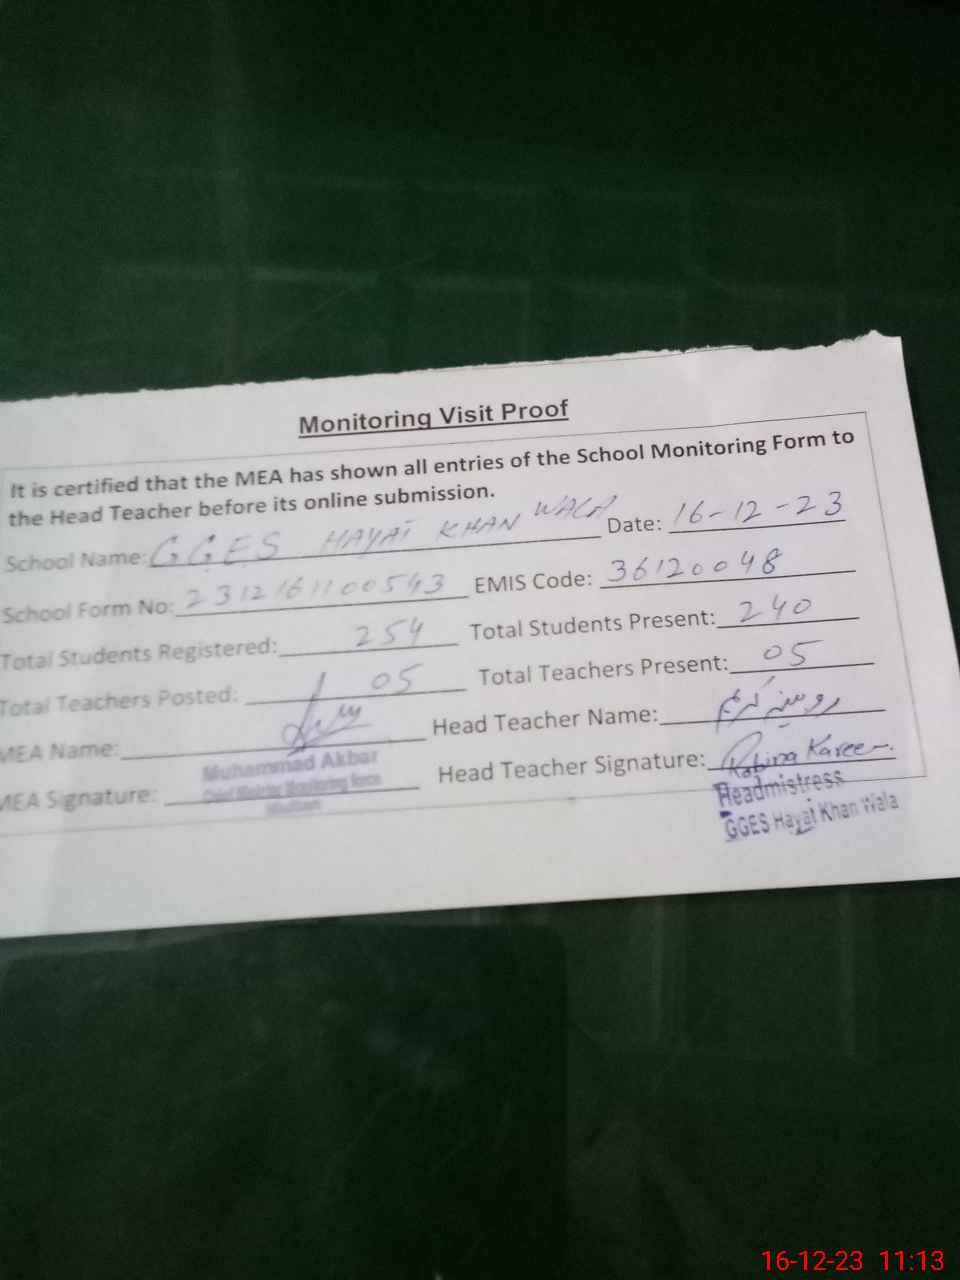 Monitoring Visit Proof
It is certified that the MEA has shown all entries of the School Monitoring Form to
the Head Teacher before its online submission.
School Name: GGES HAYAT KHAN WALA Date: 16-12-23
School Form No: 2312161100543 EMIS Code: 36120048
Total Students Registered: 254 Total Students Present: 240
Total Teachers Posted: 05 Total Teachers Present: 05
MEA Name: Head Teacher Name:
MEA Signature: Head Teacher Signature: Robina Kareem
Muhammad Akbar
Chief Minister Monitoring Force
Headmistress
GGES Hayat Khan Wala
16-12-23 11:13